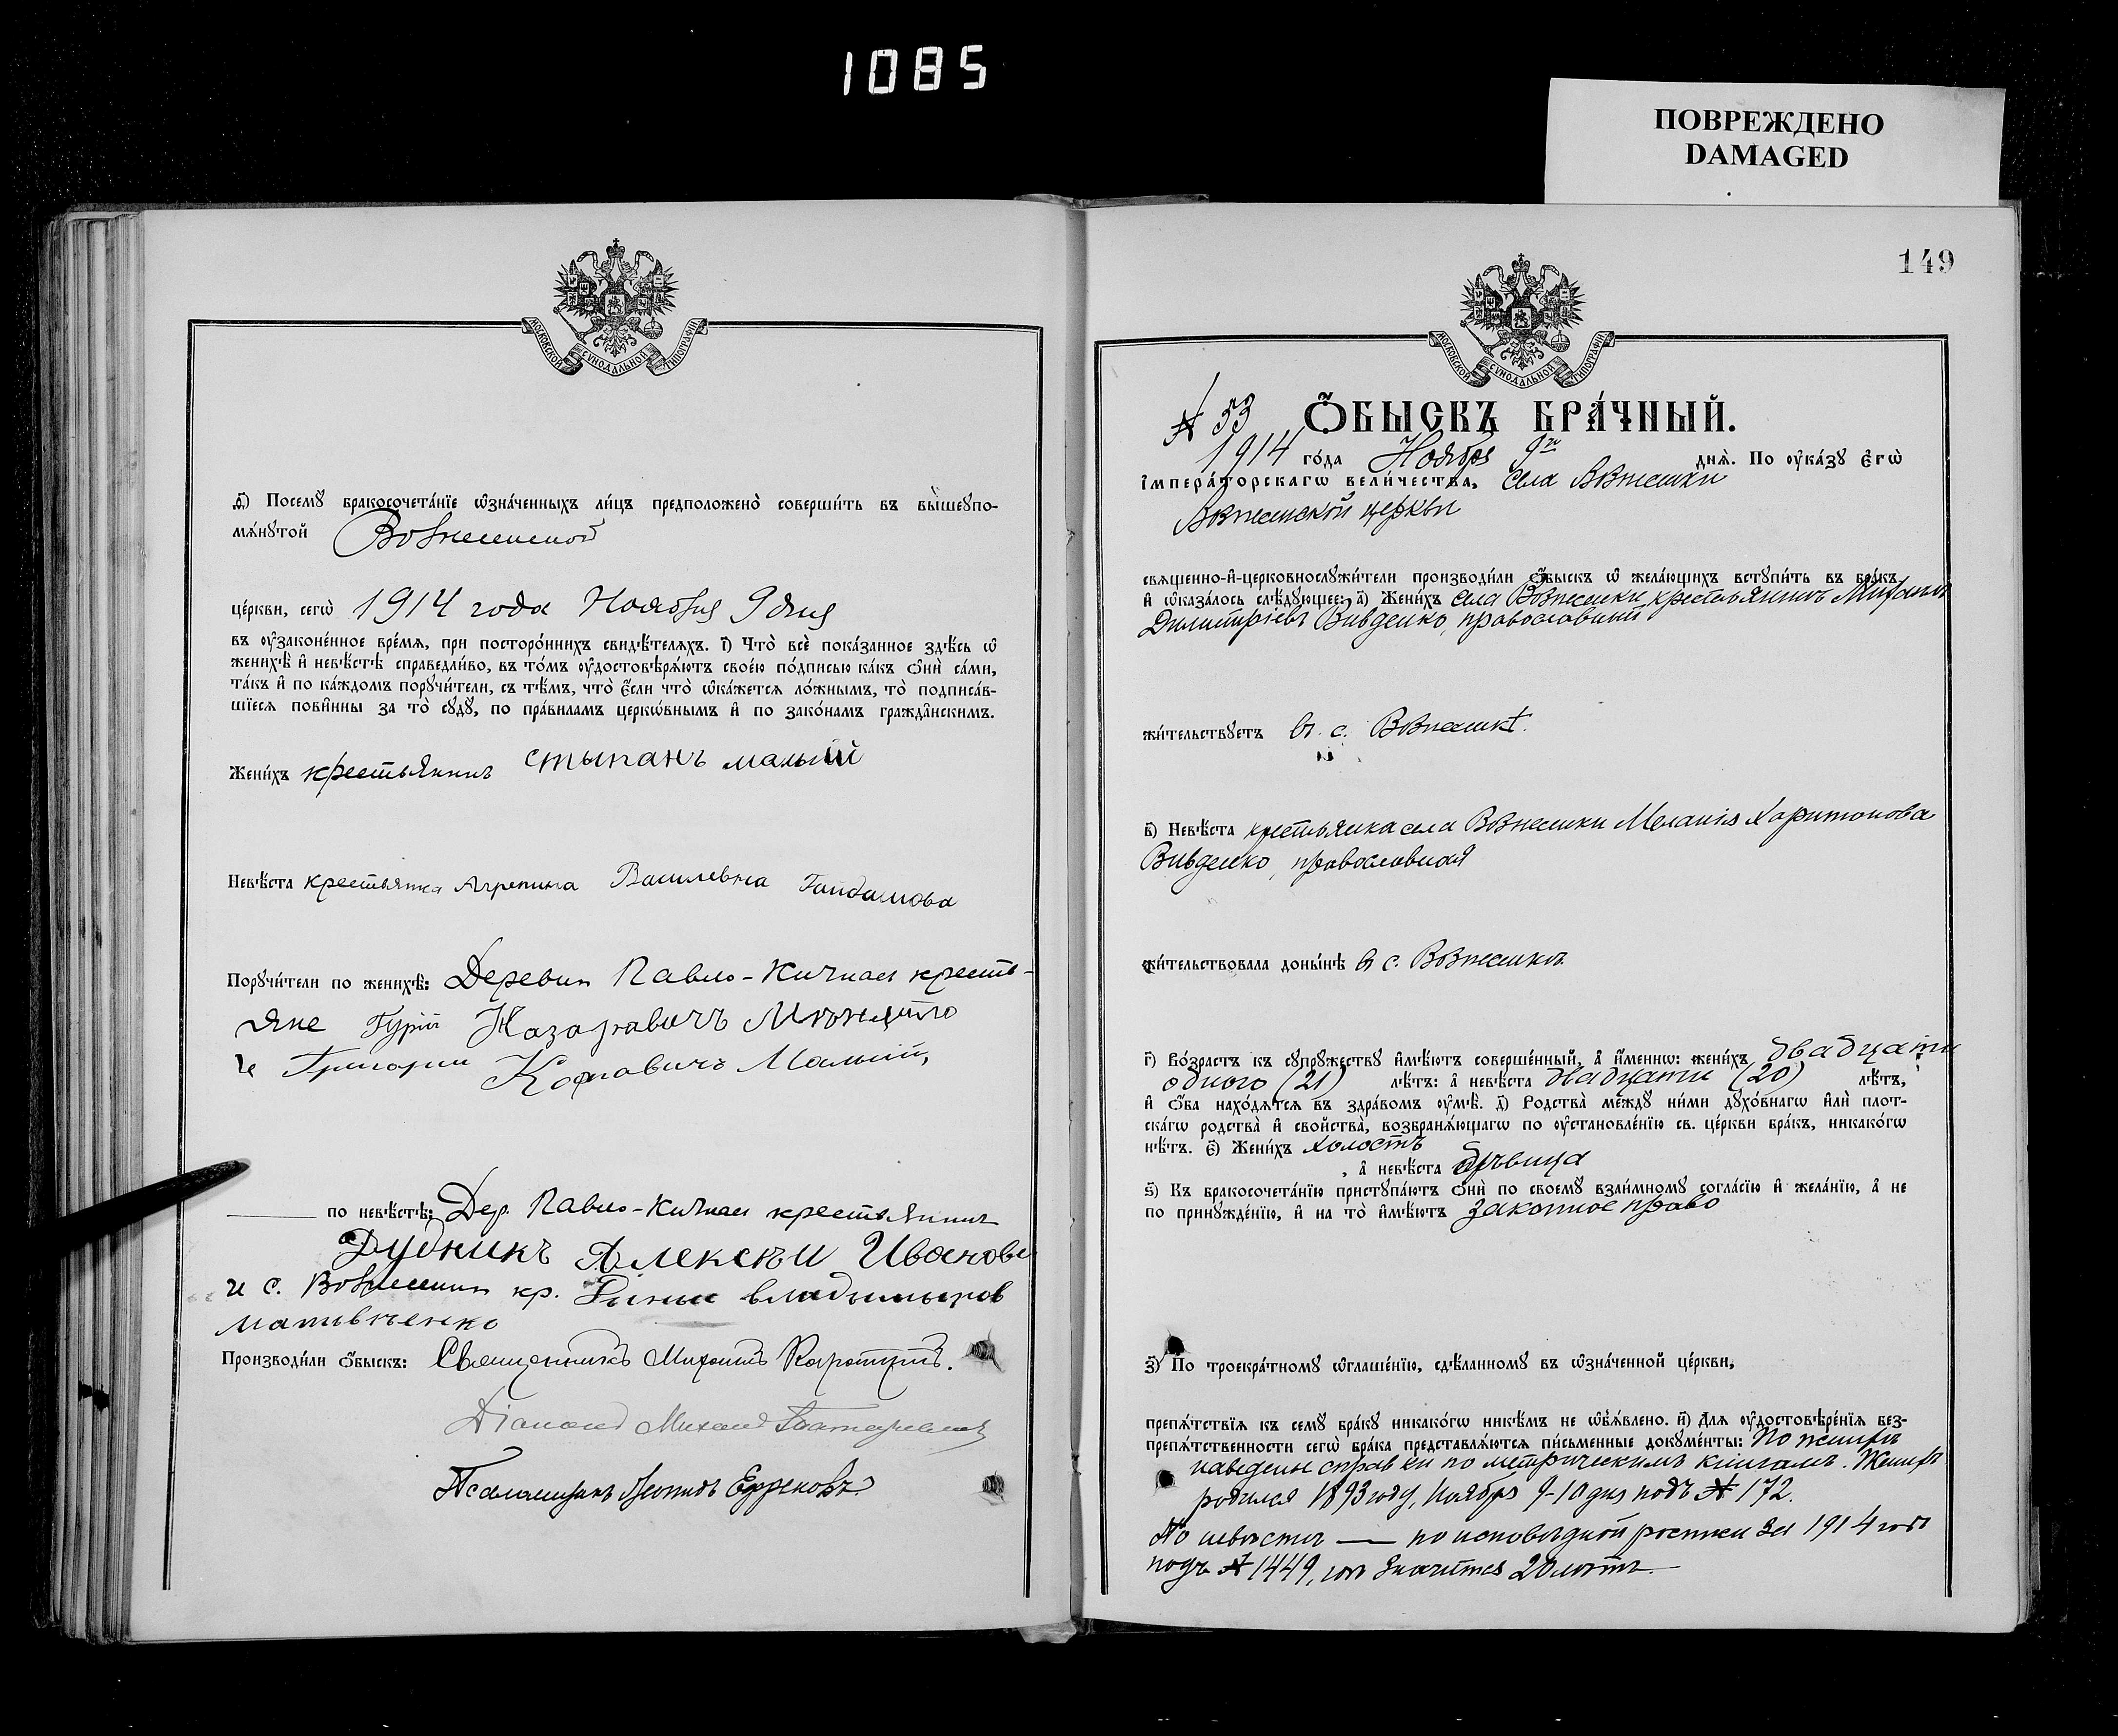 1085
ПОВРЕЖДЕНО
DAMAGED
МОСКОВСКОЙ СУНОДАЛЬНОЙ ТИПОГРАФІИ
д҃і) Посемꙋ бракосочета́нїе ѡ҆зна́ченныхъ ли́цъ предположено̀ соверши́ть въ вы̀шеꙋпо-
мѧ́нꙋтой Вознесенской
це́ркви, сегѡ̀ 1914 года Ноября 9 дня
въ ѹ҆законе́нное вре́мѧ, при посторо́ннихъ свидѣ́телѧхъ. і҃) Что̀ всѐ пока́занное здѣ́сь ѡ҆
женихѣ̀ и҆ невѣ́стѣ справедли́во, въ то́мъ ѹ҆достовѣрѧ́ютъ свое́ю по́дписью ка́къ ѻ҆нѝ са́ми,
та́къ и҆ по ка́ждомъ порꙋчи́тели, съ тѣ́мъ, что̀ є҆́сли что̀ ѡ҆ка́жетсѧ ло́жнымъ, то̀ подписа́в-
шїесѧ пови́нны за то̀ сꙋдꙋ̀, по пра́виламъ церкѡ́внымъ и҆ по зако́намъ гражда́нскимъ.
Жени́хъ крестьянинъ Стыпанъ малый
Невѣ́ста крестьянка Агрепина Василевна Гайдамова
Порꙋчи́тели по женихѣ̀: Деревни Павло-Кичкас кресть-
яне Гурій Назаравичъ
и Григории Карповичъ Малый,
по невѣ́стѣ: Дер. Павло-Кичкас крестьянинъ
Дудникъ Алексѣи Иванове
и с. Вознесенки кр. владымыров
матвѣенко
Производи́ли ѻ҆́быскъ: Священникъ Михаилъ
Діаконъ Михаил
Псаломщикъ Леонидъ Ефремовъ
149
МОСКОВСКОЙ СУНОДАЛЬНОЙ ТИПОГРАФІИ
№ 53 Ѻ҆́БЫСКЪ БРА́ЧНЫЙ.
1914 го́да Ноября 9го днѧ̀. По ѹ҆ка́зꙋ є҆гѡ̀
і҆мпера́торскагѡ вели́чества, села Вознесенки
Вознесенской церкви
свѧщенно-и҆-церковнослꙋжи́тели производи́ли ѻ҆́быскъ ѡ҆ жела́ющихъ встꙋпи́ть въ бра́къ,
и҆ ѡ҆каза́лось слѣ́дꙋющее: а҃) Жени́хъ села Вознесенки, крестьянинъ Михаилъ
Димитріевъ Вивденко, православный
жи́тельствꙋетъ въ с. Вознесенкѣ.
в҃) Невѣ́ста крестьянка села Вознесенки Меланія Харитонова
Вивденко, православная
жи́тельствовала доны́нѣ въ с. Вознесенкѣ
г҃) Во́зрастъ къ сꙋпрꙋ́жествꙋ и҆мѣ́ютъ соверше́нный, а҆ и҆́меннѡ: жени́хъ двадцати
одного (21) лѣ́тъ: а҆ невѣ́ста двадцати (20) лѣ́тъ,
и҆ ѻ҆́ба нахо́дѧтсѧ въ здра́вомъ ѹ҆мѣ̀. д҃) Родства̀ ме́ждꙋ ни́ми дꙋхо́внагѡ и҆лѝ плот-
ска́гѡ родства̀ и҆ свойства̀, возбранѧ́ющагѡ по ѹ҆становле́нїю св. це́ркви бра́къ, никако́гѡ
нѣ́тъ. є҃) Жени́хъ холостъ
, а҆ невѣ́ста дѣвица
ѕ҃) Къ бракосочета́нїю пристꙋпа́ютъ ѻ҆нѝ по своемꙋ̀ взаи́мномꙋ согла́сїю и҆ жела́нїю, а҆ не
по принꙋжде́нїю, и҆ на то̀ и҆мѣ́ютъ законное право
з҃) По троекра́тномꙋ ѡ҆глаше́нїю, сдѣ́ланномꙋ въ ѡ҆зна́ченной це́ркви,
препѧ́тствїѧ къ семꙋ̀ бра́кꙋ никако́гѡ никѣ́мъ не ѡ҆б̾ѧ́влено. и҃) Длѧ ѹ҆достовѣре́нїѧ без-
препѧ́тственности сегѡ̀ бра́ка представлѧ́ютсѧ пи́сьменные докꙋме́нты: По женихѣ
наведены справки по метрическимъ книгамъ. Женихъ
родился 1893 году, Ноября 9-10 дня подъ № 172.
По невѣстѣ — по исповѣдной росписи за 1914 годъ
подъ № 1449, гдѣ значится 20 лѣтъ.—